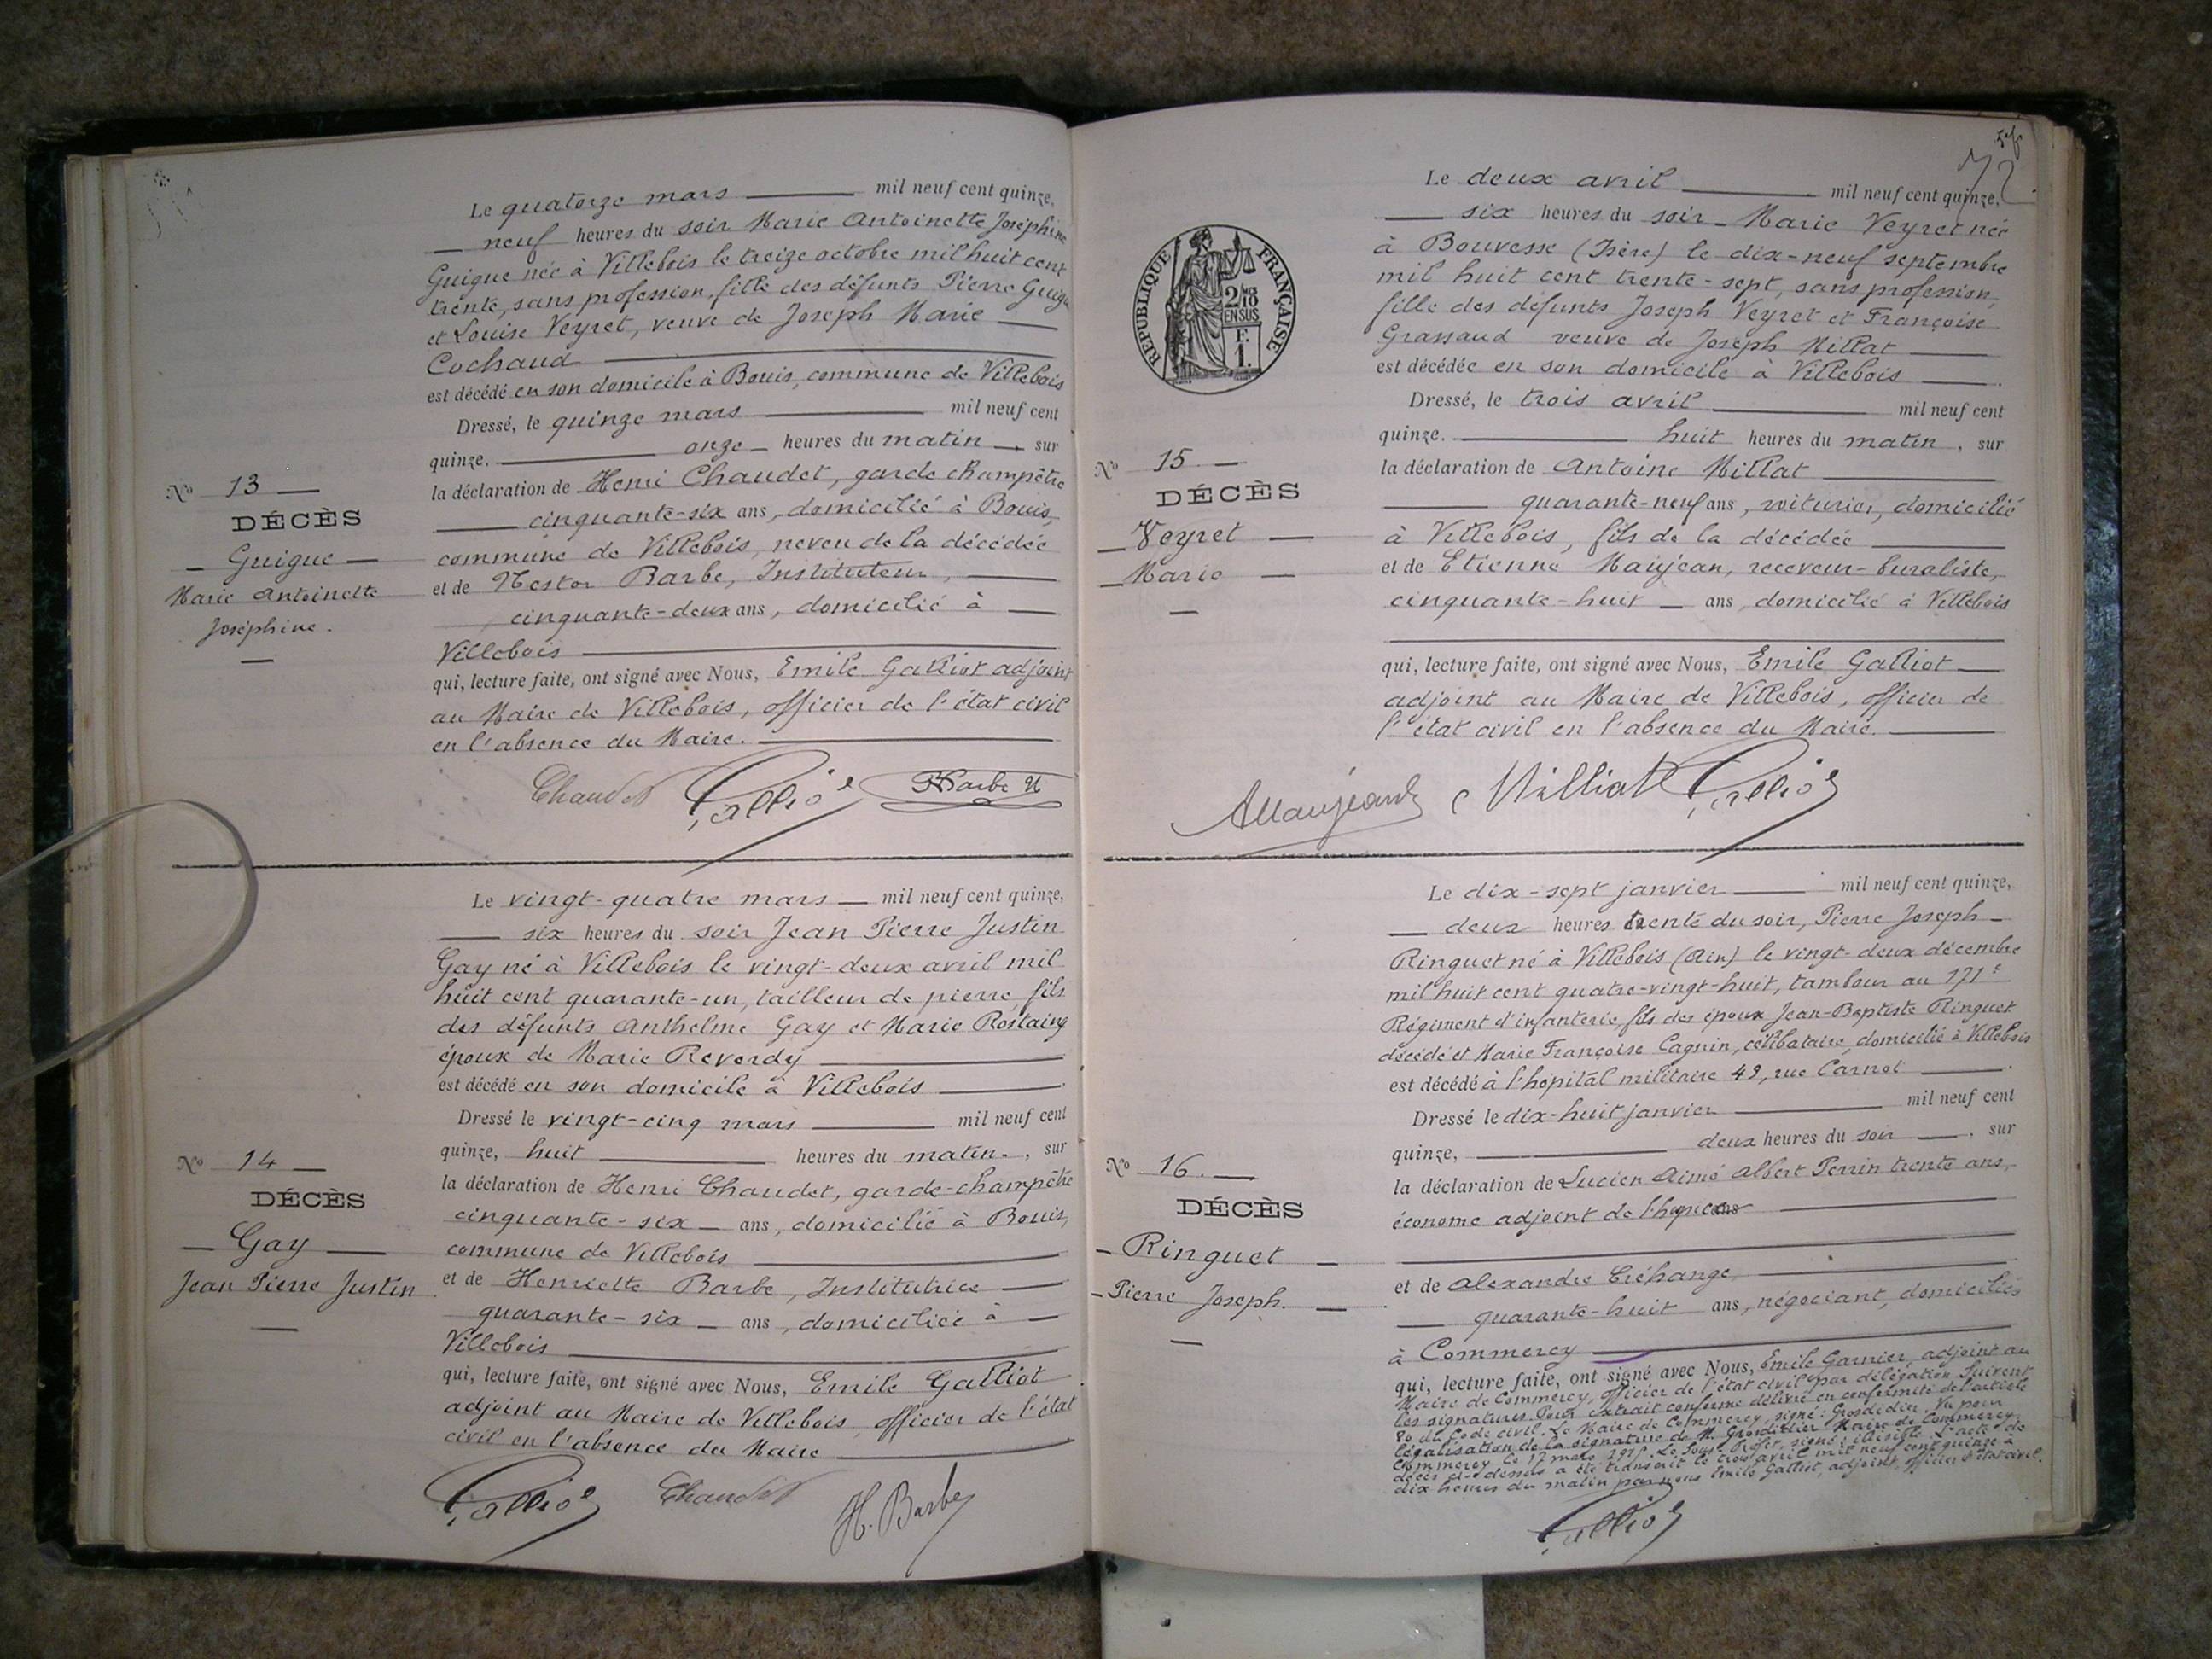 Le quatorze mars mil neuf cent quinze,
neuf heures du soir Marie Antoinette Joséphine
Guigue née à Villebois le treize octobre mil huit cent
trente, sans profession, fille des défunts Pierre Guigue
et Louise Veyret, veuve de Joseph Marie
Cochaud
est décédé en son domicile à Bouis, commune de Villebois
Dressé, le quinze mars mil neuf cent
quinze. onze heures du matin, sur
la déclaration de Henri Chaudet, garde champêtre
cinquante-six ans, domicilié à Bouis,
commune de Villebois, neveu de la décédée
et de Nestor Barbe, Instituteur,
cinquante-deux ans, domicilié à
Villebois
qui, lecture faite, ont signé avec Nous, Emile Galliot adjoint
au Maire de Villebois, officier de l'état civil
en l'absence du Maire.
Chaudet Galliot Barbe N
No 13
DÉCÈS
Guigue
Marie Antoinette
Joséphine.
Le vingt-quatre mars mil neuf cent quinze,
six heures du soir Jean Pierre Justin
Gay né à Villebois le vingt-deux avril mil
huit cent quarante-un, tailleur de pierre fils
des défunts Anthelme Gay et Marie Rostaing
époux de Marie Reverdy
est décédé en son domicile à Villebois
Dressé le vingt-cinq mars mil neuf cent
quinze, huit heures du matin, sur
la déclaration de Henri Chaudet, garde-champêtre
cinquante-six ans, domicilié à Bouis,
commune de Villebois
et de Henriette Barbe, Institutrice
quarante-six ans, domiciliée à
Villebois
qui, lecture faite, ont signé avec Nous, Emile Galliot
adjoint au Maire de Villebois, officier de l'état
civil en l'absence du Maire
Galliot Chaudet H. Barbe
No 14
DÉCÈS
Gay
Jean Pierre Justin
72
RÉPUBLIQUE FRANÇAISE
2/10
EN SUS
F.
1.
Le deux avril mil neuf cent quinze,
six heures du soir Marie Veyret née
à Bouvesse (Isère) le dix-neuf septembre
mil huit cent trente-sept, sans profession,
fille des défunts Joseph Veyret et Françoise
Grassaud veuve de Joseph Millat
est décédée en son domicile à Villebois
Dressé, le trois avril mil neuf cent
quinze. huit heures du matin, sur
la déclaration de Antoine Millat
quarante-neuf ans, voiturier, domicilié
à Villebois, fils de la décédée
et de Etienne Maujean, receveur-buraliste,
cinquante-huit ans, domicilié à Villebois
qui, lecture faite, ont signé avec Nous, Emile Galliot
adjoint au Maire de Villebois, officier de
l'état civil en l'absence du Maire.
Maujean Milliat Galliot
No 15
DÉCÈS
Veyret
Marie
Le dix-sept janvier mil neuf cent quinze,
deux heures trente du soir, Pierre Joseph
Ringuet né à Villebois (Ain) le vingt-deux décembre
mil huit cent quatre-vingt-huit, tambour au 171e
Régiment d'infanterie, fils des époux Jean-Baptiste Ringuet
décédé et Marie Françoise Cagnin, célibataire, domicilié à Villebois
est décédé à l'hôpital militaire 49, rue Carnot
Dressé le dix-huit janvier mil neuf cent
quinze, deux heures du soir, sur
la déclaration de Lucien Aimé Albert Perrin trente ans,
économe adjoint de l'hospice
et de Alexandre Créhange,
quarante-huit ans, négociant, domiciliés
à Commercy
qui, lecture faite, ont signé avec Nous, Emile Garnier, adjoint au
Maire de Commercy, officier de l'état civil par délégation Suivent
les signatures. Pour extrait conforme délivré en conformité de l'article
80 du Code civil. Le Maire de Commercy, signé: Grosdidier. Vu pour
légalisation de la signature de M. Grosdidier Maire de Commercy,
Commercy le 17 mars 1915. Le Sous Préfet, signé: illisible. L'acte de
décès ci-dessus a été transcrit le trois avril mil neuf cent quinze à
dix heures du matin par nous Emile Galliot, adjoint, officier d'état civil.
Galliot
No 16.
DÉCÈS
Ringuet
Pierre Joseph.